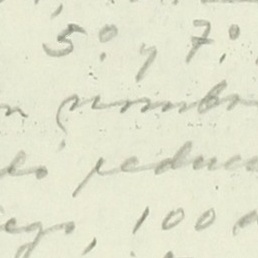 5º y 7º.
n nombr
do reduc
egs, 100